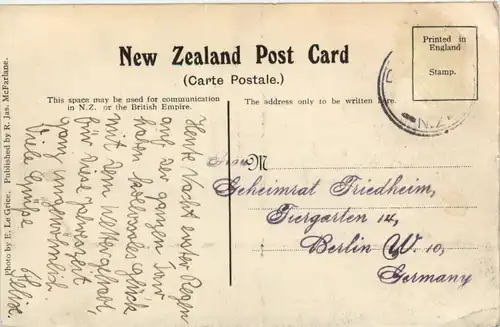 Printed in
England
Stamp.
New Zealand Post Card
(Carte Postale.)
This space may be used for communication
in N.Z. or the British Empire.
The address only to be written here.
N.Z.
Photo by E. Le Grice. Published by R. Jas. McFarlane.
Heute Nacht erster Regen
auf der ganzen Tour
haben tolles Glück
mit dem Wetter gehabt,
für diese Jahreszeit
ganz ungewöhnlich.
Viele Grüße
Felix.
Frau M
Geheimrat Friedheim,
Tiergarten 14,
Berlin W. 10,
Germany